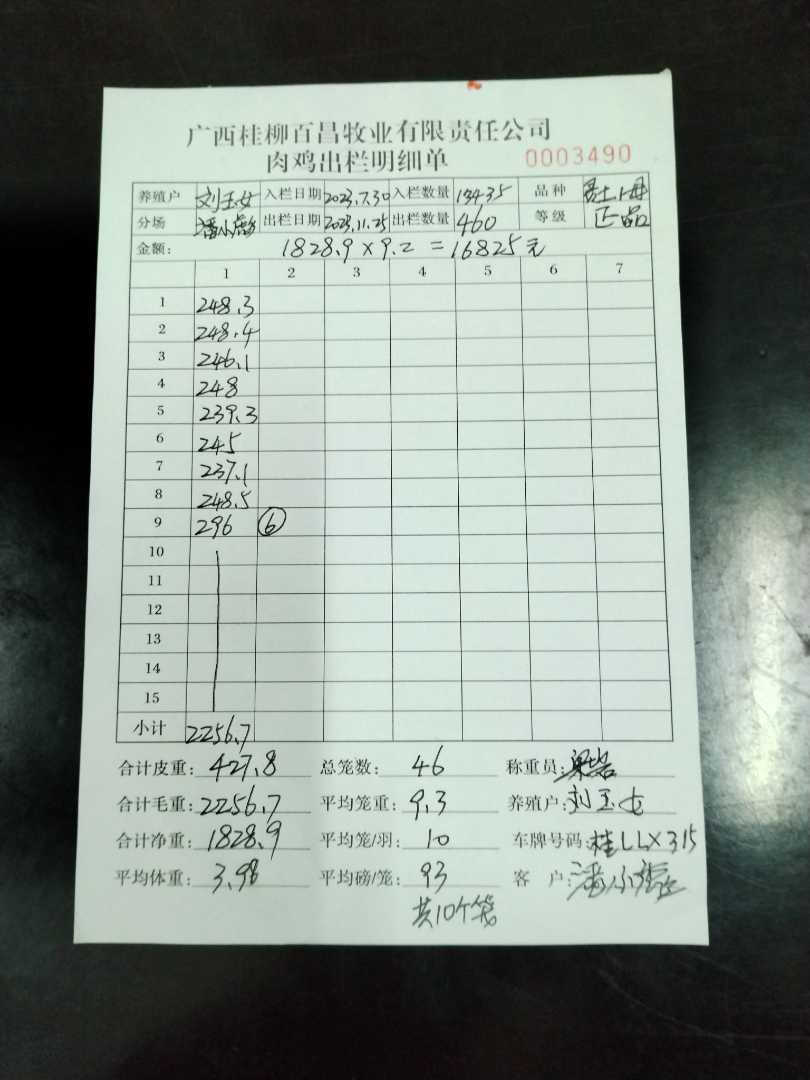 广西桂柳百昌牧业有限责任公司
肉鸡出栏明细单 0003490
养殖户 刘玉女 入栏日期 2023.7.30 入栏数量 13435 品种
分场 出栏日期 2023.11.25 出栏数量 460 等级 正品
金额: 1828.9×9.2=16825元
1 2 3 4 5 6 7
1 248.3
2 248.4
3 246.1
4 248
5 239.3
6 245
7 237.1
8 248.5
9 296 ⑥
10
11
12
13
14
15
小计 2256.7
合计皮重: 427.8 总笼数: 46 称重员:
合计毛重: 2256.7 平均笼重: 9.3 养殖户: 刘玉女
合计净重: 1828.9 平均笼/羽: 10 车牌号码: 桂LLX315
平均体重: 3.98 平均磅/笼: 93 客户: 潘小
共10个笼